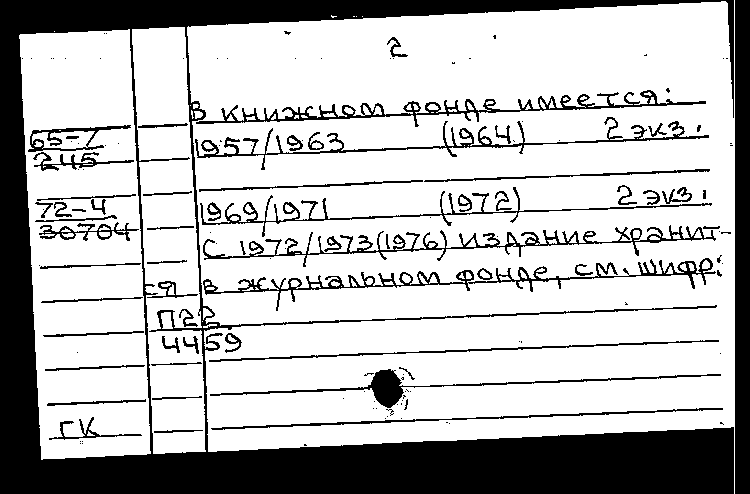 2
В книжном фонде имеется:
65-7
245
1957/1963 (1964) 2 экз.
72-4
30704
1969/1971 (1972) 2 экз.
С 1972/1973(1976) издание хранит-
ся в журнальном фонде, см. шифр:
П22
4459
ГК